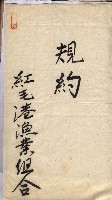 規約
紅毛港漁業組合